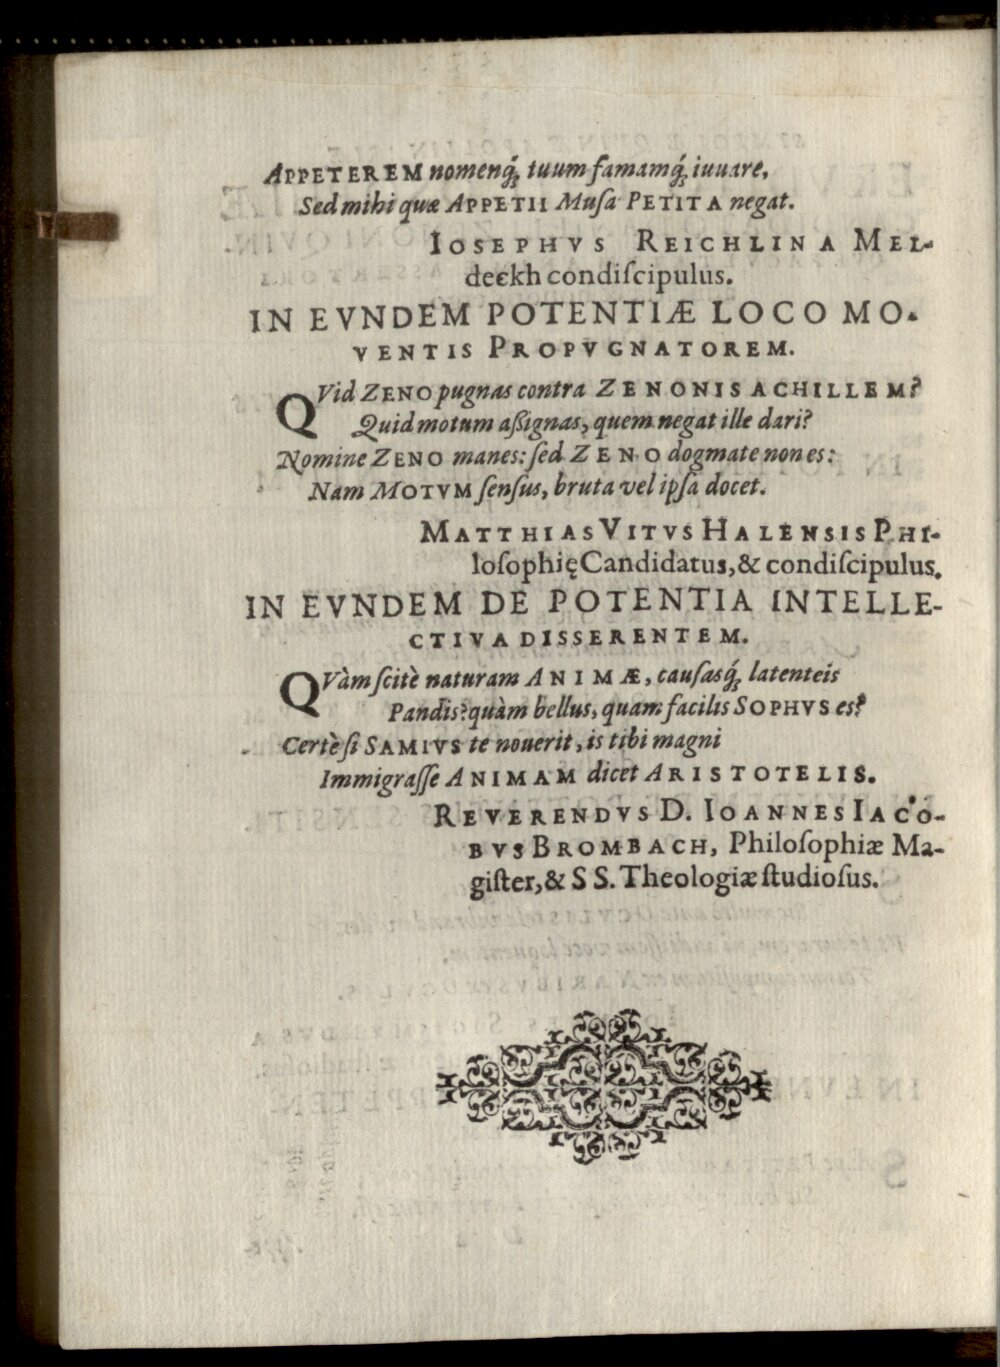 APPETEREM nomenq́; tuum famamq́; iuuare,
Sed mihi quæ APPETII Muſa PETITA negat.
IOSEPHVS REICHLIN A MEL-
deckh condiſcipulus.
IN EVNDEM POTENTIÆ LOCO MO-
VENTIS PROPVGNATOREM.
QVid ZENO pugnas contra ZENONIS ACHILLEM?
Quid motum aßignas, quem negat ille dari?
Nomine ZENO manes: ſed ZENO dogmate non es:
Nam MOTVM ſenſus, bruta vel ipſa docet.
MATTHIAS VITVS HALENSIS PHI-
loſophię Candidatus, & condiſcipulus.
IN EVNDEM DE POTENTIA INTELLE-
CTIVA DISSERENTEM.
QVàm ſcitè naturam ANIMÆ, cauſasq́; latenteis
Pandis? quàm bellus, quam facilis SOPHVS es?
Certè ſi SAMIVS te nouerit, is tibi magni
Immigraſſe ANIMAM dicet ARISTOTELIS.
REVERENDVS D. IOANNES IACO-
BVS BROMBACH, Philoſophiæ Ma-
giſter, & SS. Theologiæ ſtudioſus.